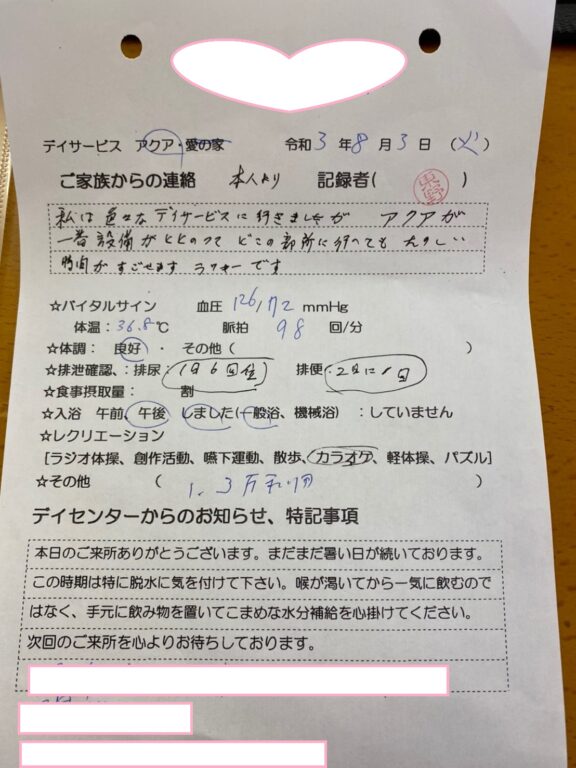 デイサービス アクア・愛の家 令和3年8月3日(火)
ご家族からの連絡 本人より 記録者( )
私は色々なデイサービスに行きましたが アクアが
一番設備がととのってどこの部所に行ってもたのしい
時間がすごせます ラッキーです
☆バイタルサイン 血圧 126/72 mmHg
体温:36.8℃ 脈拍 98 回/分
☆体調: 良好 ・ その他( )
☆排泄確認、:排尿:(1日6回位) 排便:2日に1回
☆食事摂取量: 割
☆入浴 午前、午後 しました(一般浴、機械浴) :していません
☆レクリエーション
[ラジオ体操、創作活動、嚥下運動、散歩、カラオケ、軽体操、パズル]
☆その他 ( 1.3万利用 )
デイセンターからのお知らせ、特記事項
本日のご来所ありがとうございます。まだまだ暑い日が続いております。
この時期は特に脱水に気を付けて下さい。喉が渇いてから一気に飲むので
はなく、手元に飲み物を置いてこまめな水分補給を心掛けてください。
次回のご来所を心よりお待ちしております。